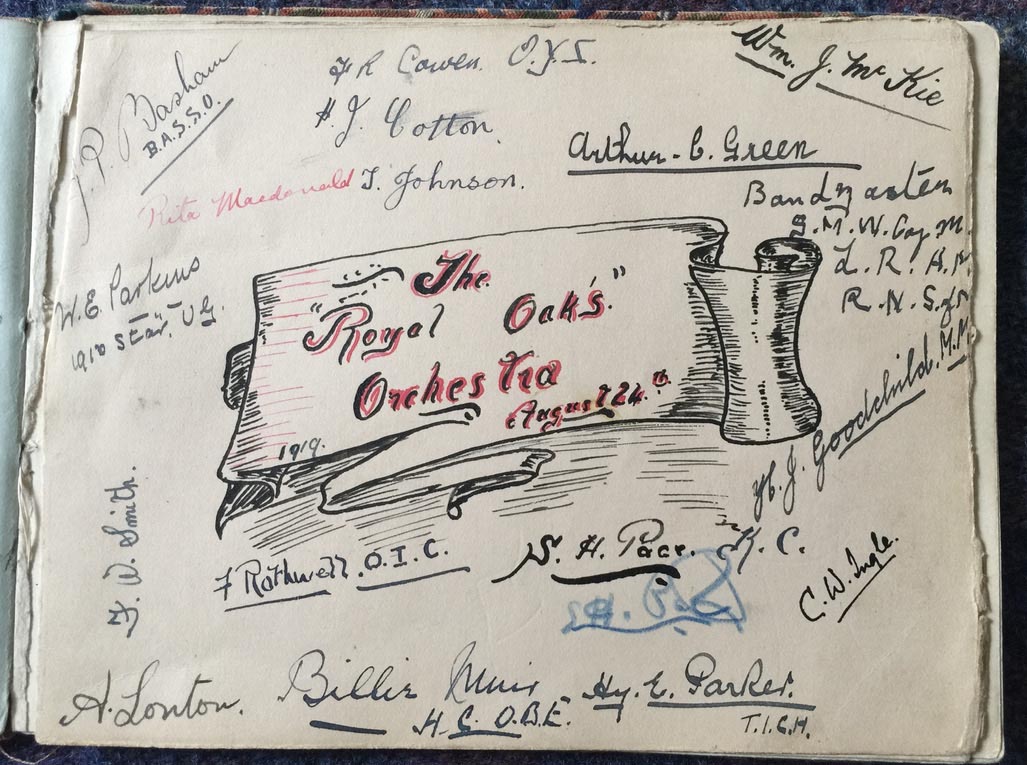 J.P. Basham
B.A.S.S.O.
F R Cowen. O.Y.I.
H. J. Cotton.
Wm. J. McKie
Arthur. C. Green
Rita Macdonald
T. Johnson.
Bandmaster
L. R. A. M.
W.E. Parkins
1910 Star, U.G.
The
"Royal Oaks."
Orchestra
August 24.th
1919.
H. J. Goodchild. M.M.
F. W. Smith.
F Rothwell. O.I.C.
S. H. Pace. K. C.
C. W. Ingle.
A. Lonton.
Billie Muir
H.C. O.B.E.
Hy. E. Parker.
T.I.G.H.